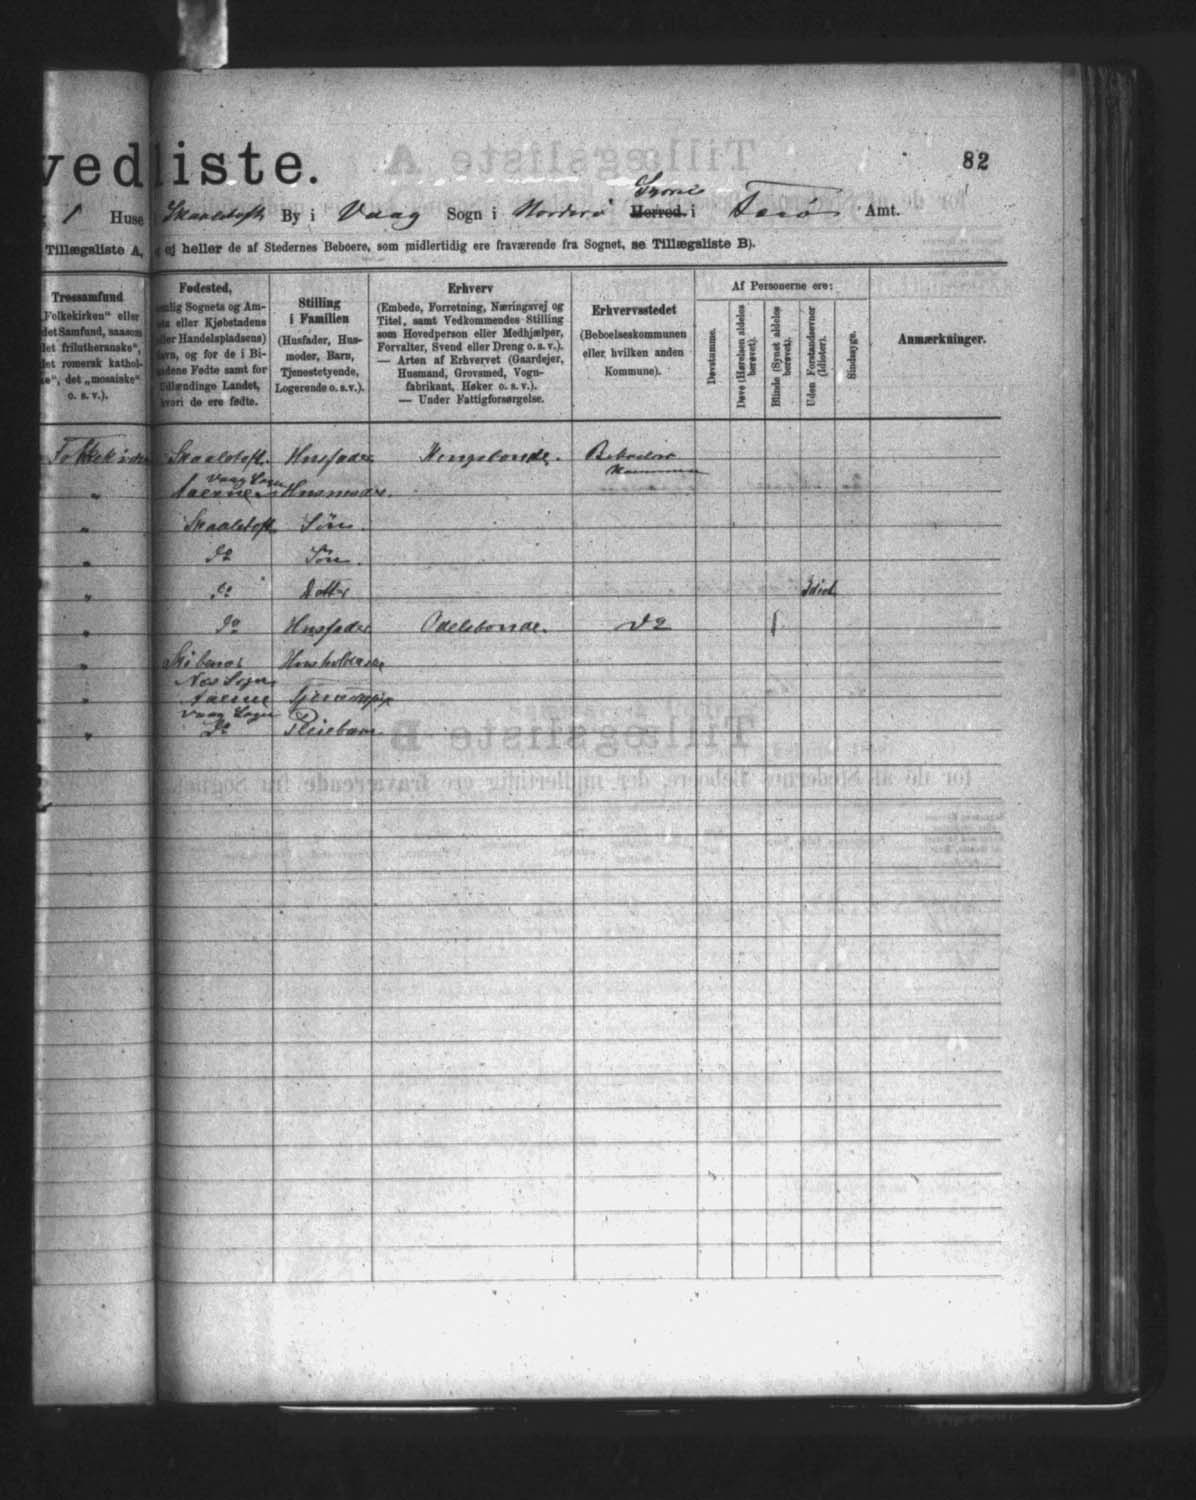 vedliste.
82
1 Huse Skaaletofte By i Vaag Sogn i Norderø Herred i Færø Amt.
Tillægsliste A, ej heller de af Stedernes Beboere, som midlertidig ere fraværende fra Sognet, se Tillægsliste B).
Trossamfund
„Folkekirken“ eller
det Samfund, saasom
det frilutheranske“,
det romersk kathol-
ke“, det „mosaiske“
o. s. v.).
Fødested,
nlig Sognets og Am-
ts eller Kjøbstadens
ller Handelspladsens)
avn, og for de i Bi-
ndene Fødte samt for
Udlændinge Landet,
hvori de ere fødte.
Stilling
i Familien
(Husfader, Hus-
moder, Barn,
Tjenestetyende,
Logerende o. s. v.).
Erhverv
(Embede, Forretning, Næringsvej og
Titel, samt Vedkommendes Stilling
som Hovedperson eller Medhjælper,
Forvalter, Svend eller Dreng o. s. v.).
— Arten af Erhvervet (Gaardejer,
Husmand, Grovsmed, Vogn-
fabrikant, Høker o. s. v.).
— Under Fattigforsørgelse.
Erhvervsstedet
(Beboelseskommunen
eller hvilken anden
Kommune).
Af Personerne ere:
Døvstumme.
Døve (Hørelsen aldeles
berøvet).
Blinde (Synet aldeles
berøvet).
Uden Forstandsevner
(Idioter).
Sindssyge.
Anmærkninger.
Folkekirken Skaaletoft. Husfader Kongsbonde. Beboelses
Kommunen
Vaag Sogn
„ Aaerne Husmoder.
„ Skaaletoft Søn.
„ Do Søn.
„ Do Datter Idiot
„ Do Husfader Odelsbonde. Do 1
„ Husholderske
Nes Sogn
„ Aaerne
Vaag Sogn
„ Do Pleiebarn